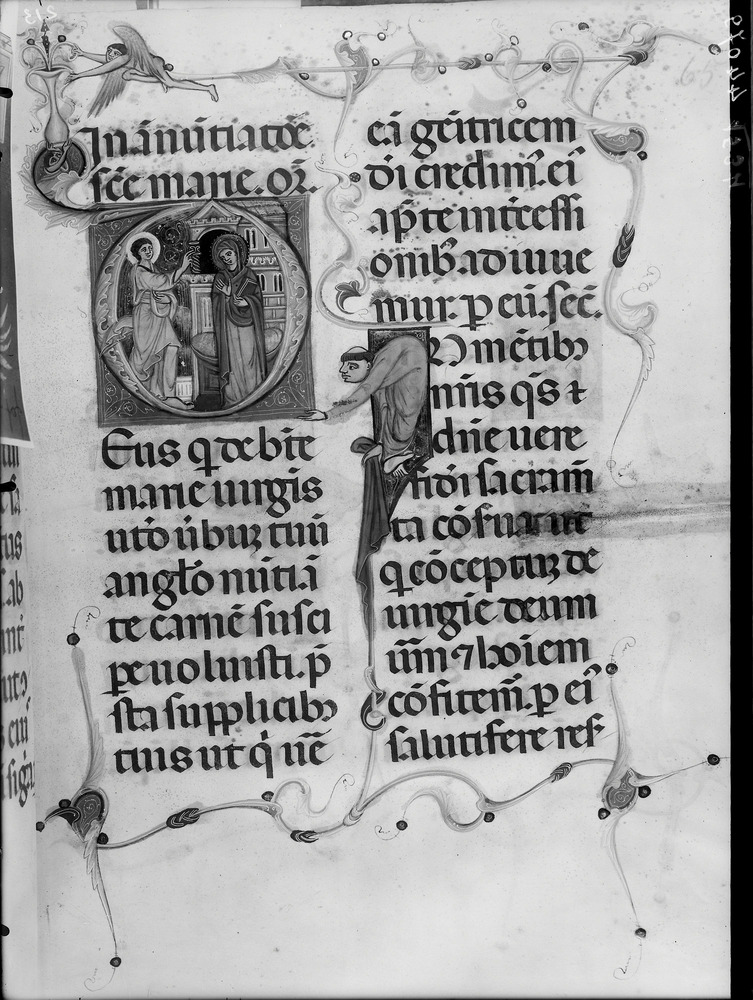 In ānūtiatōe
scē marie. or̄.
Eus q de btē
marie uirgīs
utō ūbuȝ tuū
anglo nūtiā
te carnē susci
pe uoluisti. p̄
sta supplicibȝ
tuis ut q̇ uē
eā geītricem
dī credim̄. ei
ap̄ te ītcessi
onibȝ adiuue
mur. p eū. sec̄.
N mētibȝ
nr̄is q̄s ⁊
dn̄e uere
fidī sacram̄
ta cōfirma ut
q cōceptuȝ de
uirgīe deum
uūm ⁊ hoīem
cōfitem̄. p ei
salutifere res